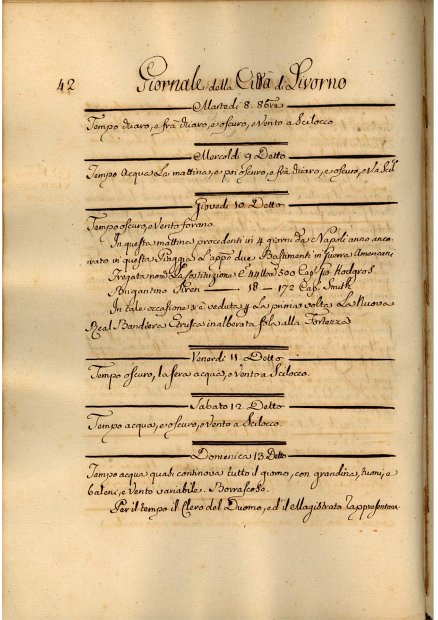 42 Giornale della Città di Livorno
Martedi 8. 8bre
Tempo chiaro, e frà chiaro, e oscuro, e Vento a Scilocco.
Mercoldi 9 Detto
Tempo Acqua La mattina, e poi oscuro, e frà chiaro, e oscuro, e Vº Scil.
Giovedi 10 Detto
Tempo oscuro, e Vento forano.
In questa mattina procedenti in 4 giorni da Napoli anno anco-
rato in questa Spiaggia L'appº due Bastimenti in Guerra Americani
Fregata nomª La Costituzione C 44 Uom. 500 Cap. Gº. Hodgers.
Brigantino Siren — 18 — 172 Cap. Smith.
In tale occasione si è veduta p La prima volta La Nuova
Real Bandiera Etrusca inalberata sola alla Fortezza
Venerdi 11. Detto
Tempo oscuro, la sera acqua, e Vento a Scilocco.
Sabato 12. Detto
Tempo acqua, e oscuro, e Vento a Scilocco.
Domenica 13. Detto
Tempo acqua quasi continova tutto il giorno, con grandina, tuoni, e
baleni, e Vento variabile. Borrascoso.
Per il tempo il Clero del Duomo, ed il Magistrato Rappresentante